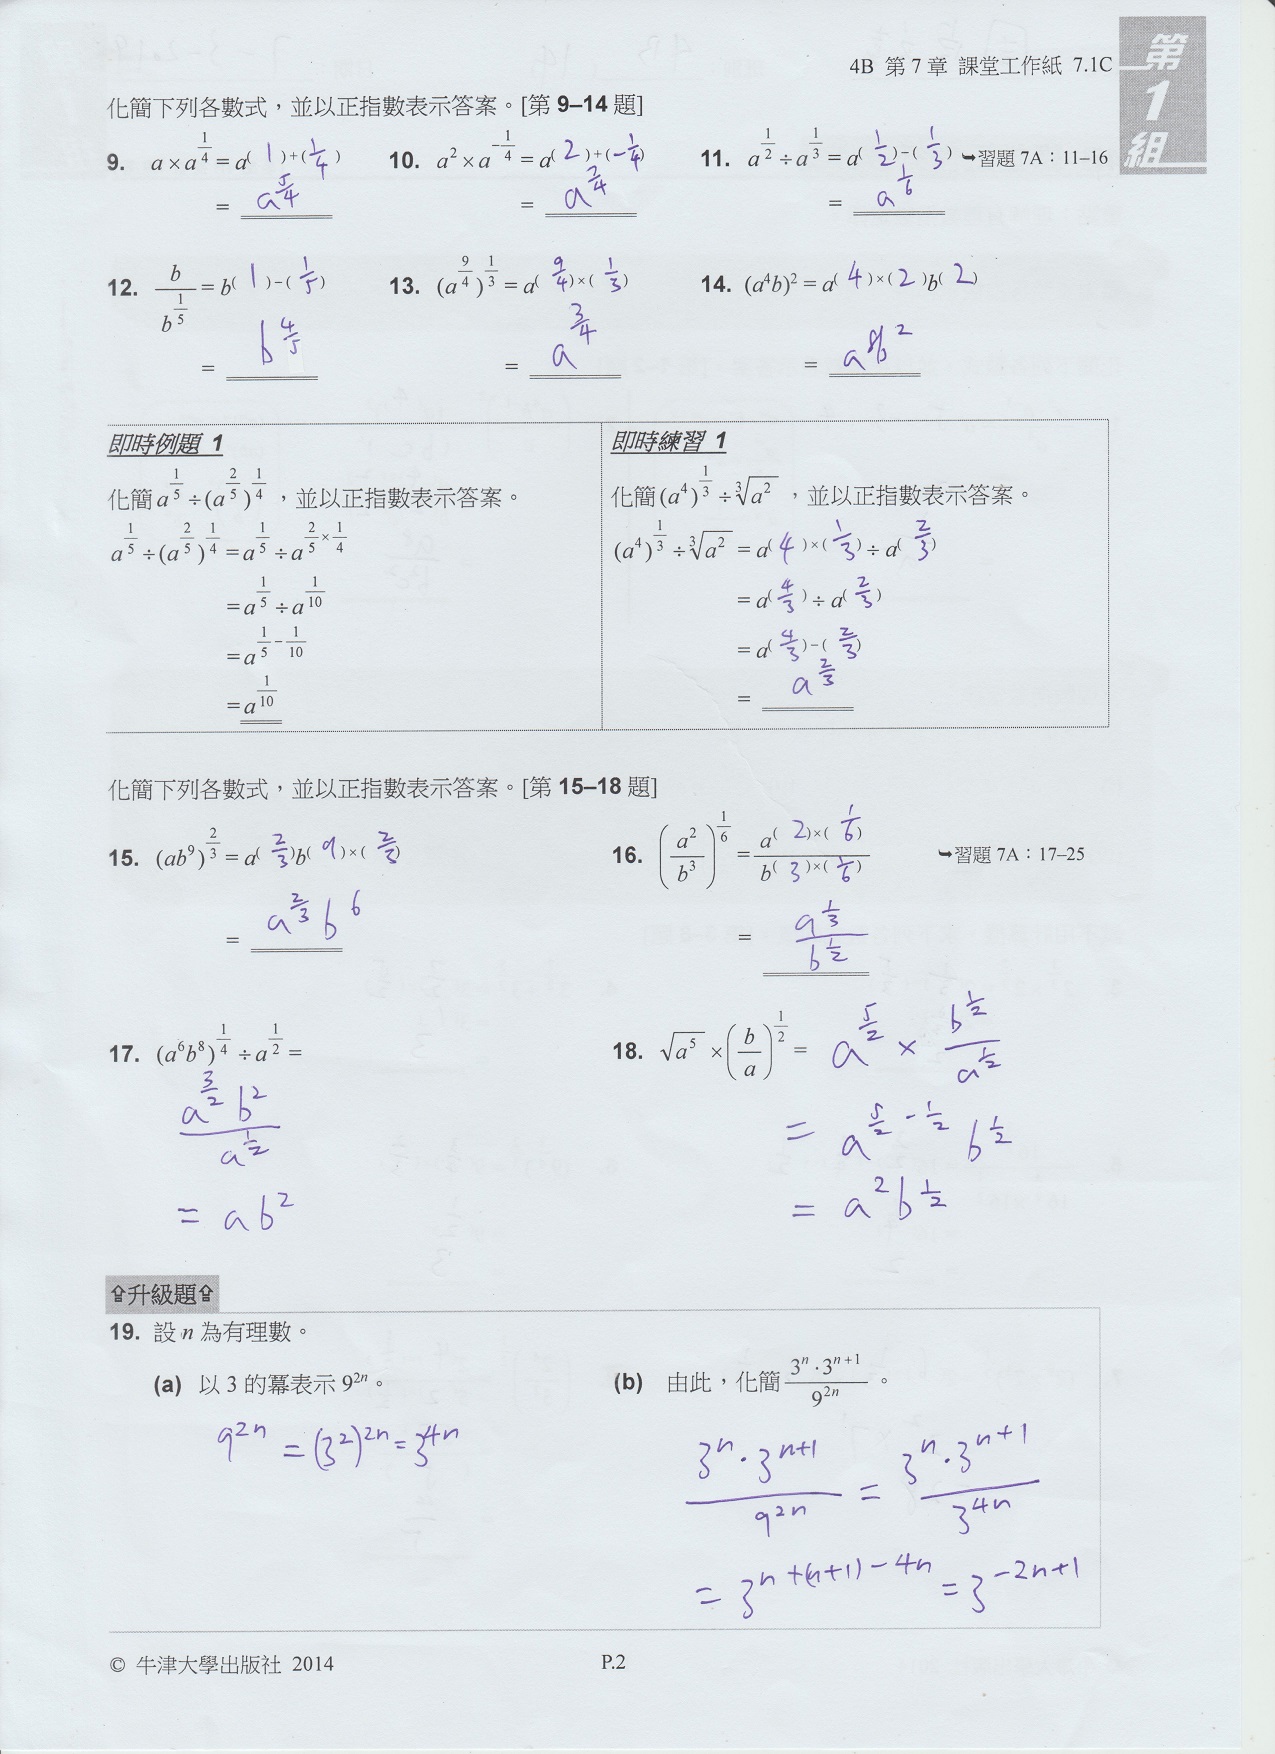 4B 第 7 章 課堂工作紙 7.1C
第 1 組
化簡下列各數式，並以正指數表示答案。[第 9–14 題]
9. a × a^{1/4} = a^{( 1 )+( 1/4 )}
= a^{5/4}
10. a^2 × a^{-1/4} = a^{( 2 )+( -1/4 )}
= a^{7/4}
11. a^{1/2} ÷ a^{1/3} = a^{( 1/2 )-( 1/3 )} ➥習題 7A：11–16
= a^{1/6}
12. b / b^{1/5} = b^{( 1 )-( 1/5 )}
= b^{4/5}
13. (a^{9/4})^{1/3} = a^{( 9/4 )×( 1/3 )}
= a^{3/4}
14. (a^4b)^2 = a^{( 4 )×( 2 )}b^{( 2 )}
= a^8b^2
即時例題 1
化簡 a^{1/5} ÷ (a^{2/5})^{1/4}，並以正指數表示答案。
a^{1/5} ÷ (a^{2/5})^{1/4} = a^{1/5} ÷ a^{2/5 × 1/4}
= a^{1/5} ÷ a^{1/10}
= a^{1/5 - 1/10}
= a^{1/10}
即時練習 1
化簡 (a^4)^{1/3} ÷ ∛a^2，並以正指數表示答案。
(a^4)^{1/3} ÷ ∛a^2 = a^{( 4 )×( 1/3 )} ÷ a^{( 2/3 )}
= a^{( 4/3 )} ÷ a^{( 2/3 )}
= a^{( 4/3 )-( 2/3 )}
= a^{2/3}
化簡下列各數式，並以正指數表示答案。[第 15–18 題]
15. (ab^9)^{2/3} = a^{( 2/3 )}b^{( 9 )×( 2/3 )}
= a^{2/3} b^6
16. (a^2/b^3)^{1/6} = a^{( 2 )×( 1/6 )} / b^{( 3 )×( 1/6 )} ➥習題 7A：17–25
= a^{1/3} / b^{1/2}
17. (a^6b^8)^{1/4} ÷ a^{1/2} =
a^{3/2} b^2 / a^{1/2}
= ab^2
18. √a^5 × (b/a)^{1/2} = a^{5/2} × b^{1/2} / a^{1/2}
= a^{5/2 - 1/2} b^{1/2}
= a^2 b^{1/2}
⇧升級題⇧
19. 設 n 為有理數。
(a) 以 3 的冪表示 9^{2n}。
9^{2n} = (3^2)^{2n} = 3^{4n}
(b) 由此，化簡 3^n · 3^{n+1} / 9^{2n}。
3^n · 3^{n+1} / 9^{2n} = 3^n · 3^{n+1} / 3^{4n}
= 3^{n+(n+1)-4n} = 3^{-2n+1}
© 牛津大學出版社 2014
P.2